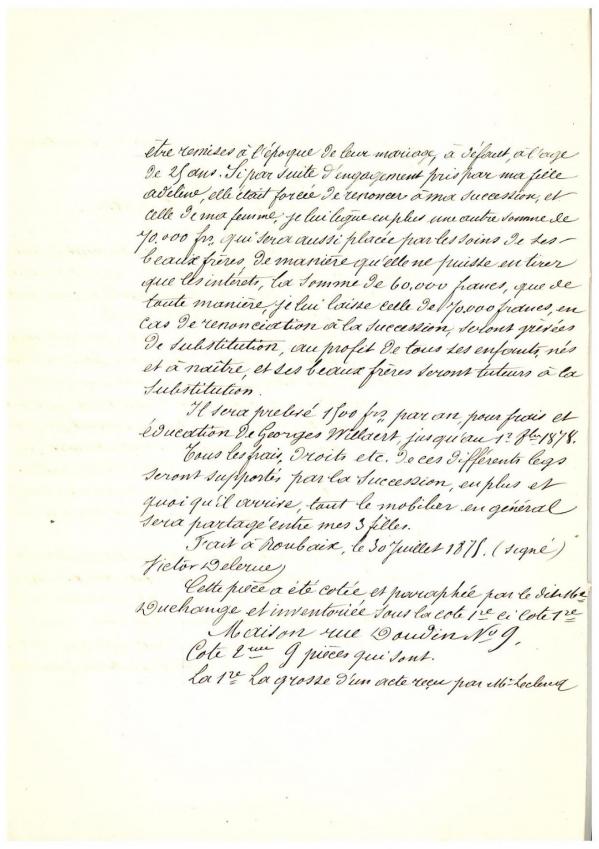 être remises à l'époque de leur mariage, à défaut, à l'age
de 25 ans. Si par suite d'engagement pris par ma fille
adeline, elle était forcée de renoncer à ma succession, et
celle de ma femme, je lui lègue en plus une autre somme de
70,000 frs, qui sera aussi placée par les soins de ses
beaux frères, de manière qu'elle ne puisse en tirer
que les intérêts, la somme de 60,000 francs, que de
toute manière, je lui laisse celle de 70,000 francs, en
cas de renonciation à la succession, seront grevées
de substitution, au profit de tous ses enfants, nés
et à naître, et ses beaux frères seront tuteurs à la
substitution.
Il sera prelevé 1500 frs, par an, pour frais et
éducation de Georges Willaert, jusqu'au 1er 8bre 1878.
Tous les frais, droits etc. de ces différents legs
seront supportés par la succession, en plus et
quoi qu'il arrive, tout le mobilier en général
sera partagé entre mes 3 filles.
Fait à Roubaix, le 30 Juillet 1875. (signé)
Victor Delerue,
Cette pièce a été cotée et paraphée par le dit Me
Duchange et inventoriée sous la cote 1re ci Cote 1re
Maison rue Daudin No 9,
Cote 2me 9 pièces qui sont.
La 1re La grosse d'un acte reçu par Me Leclercq